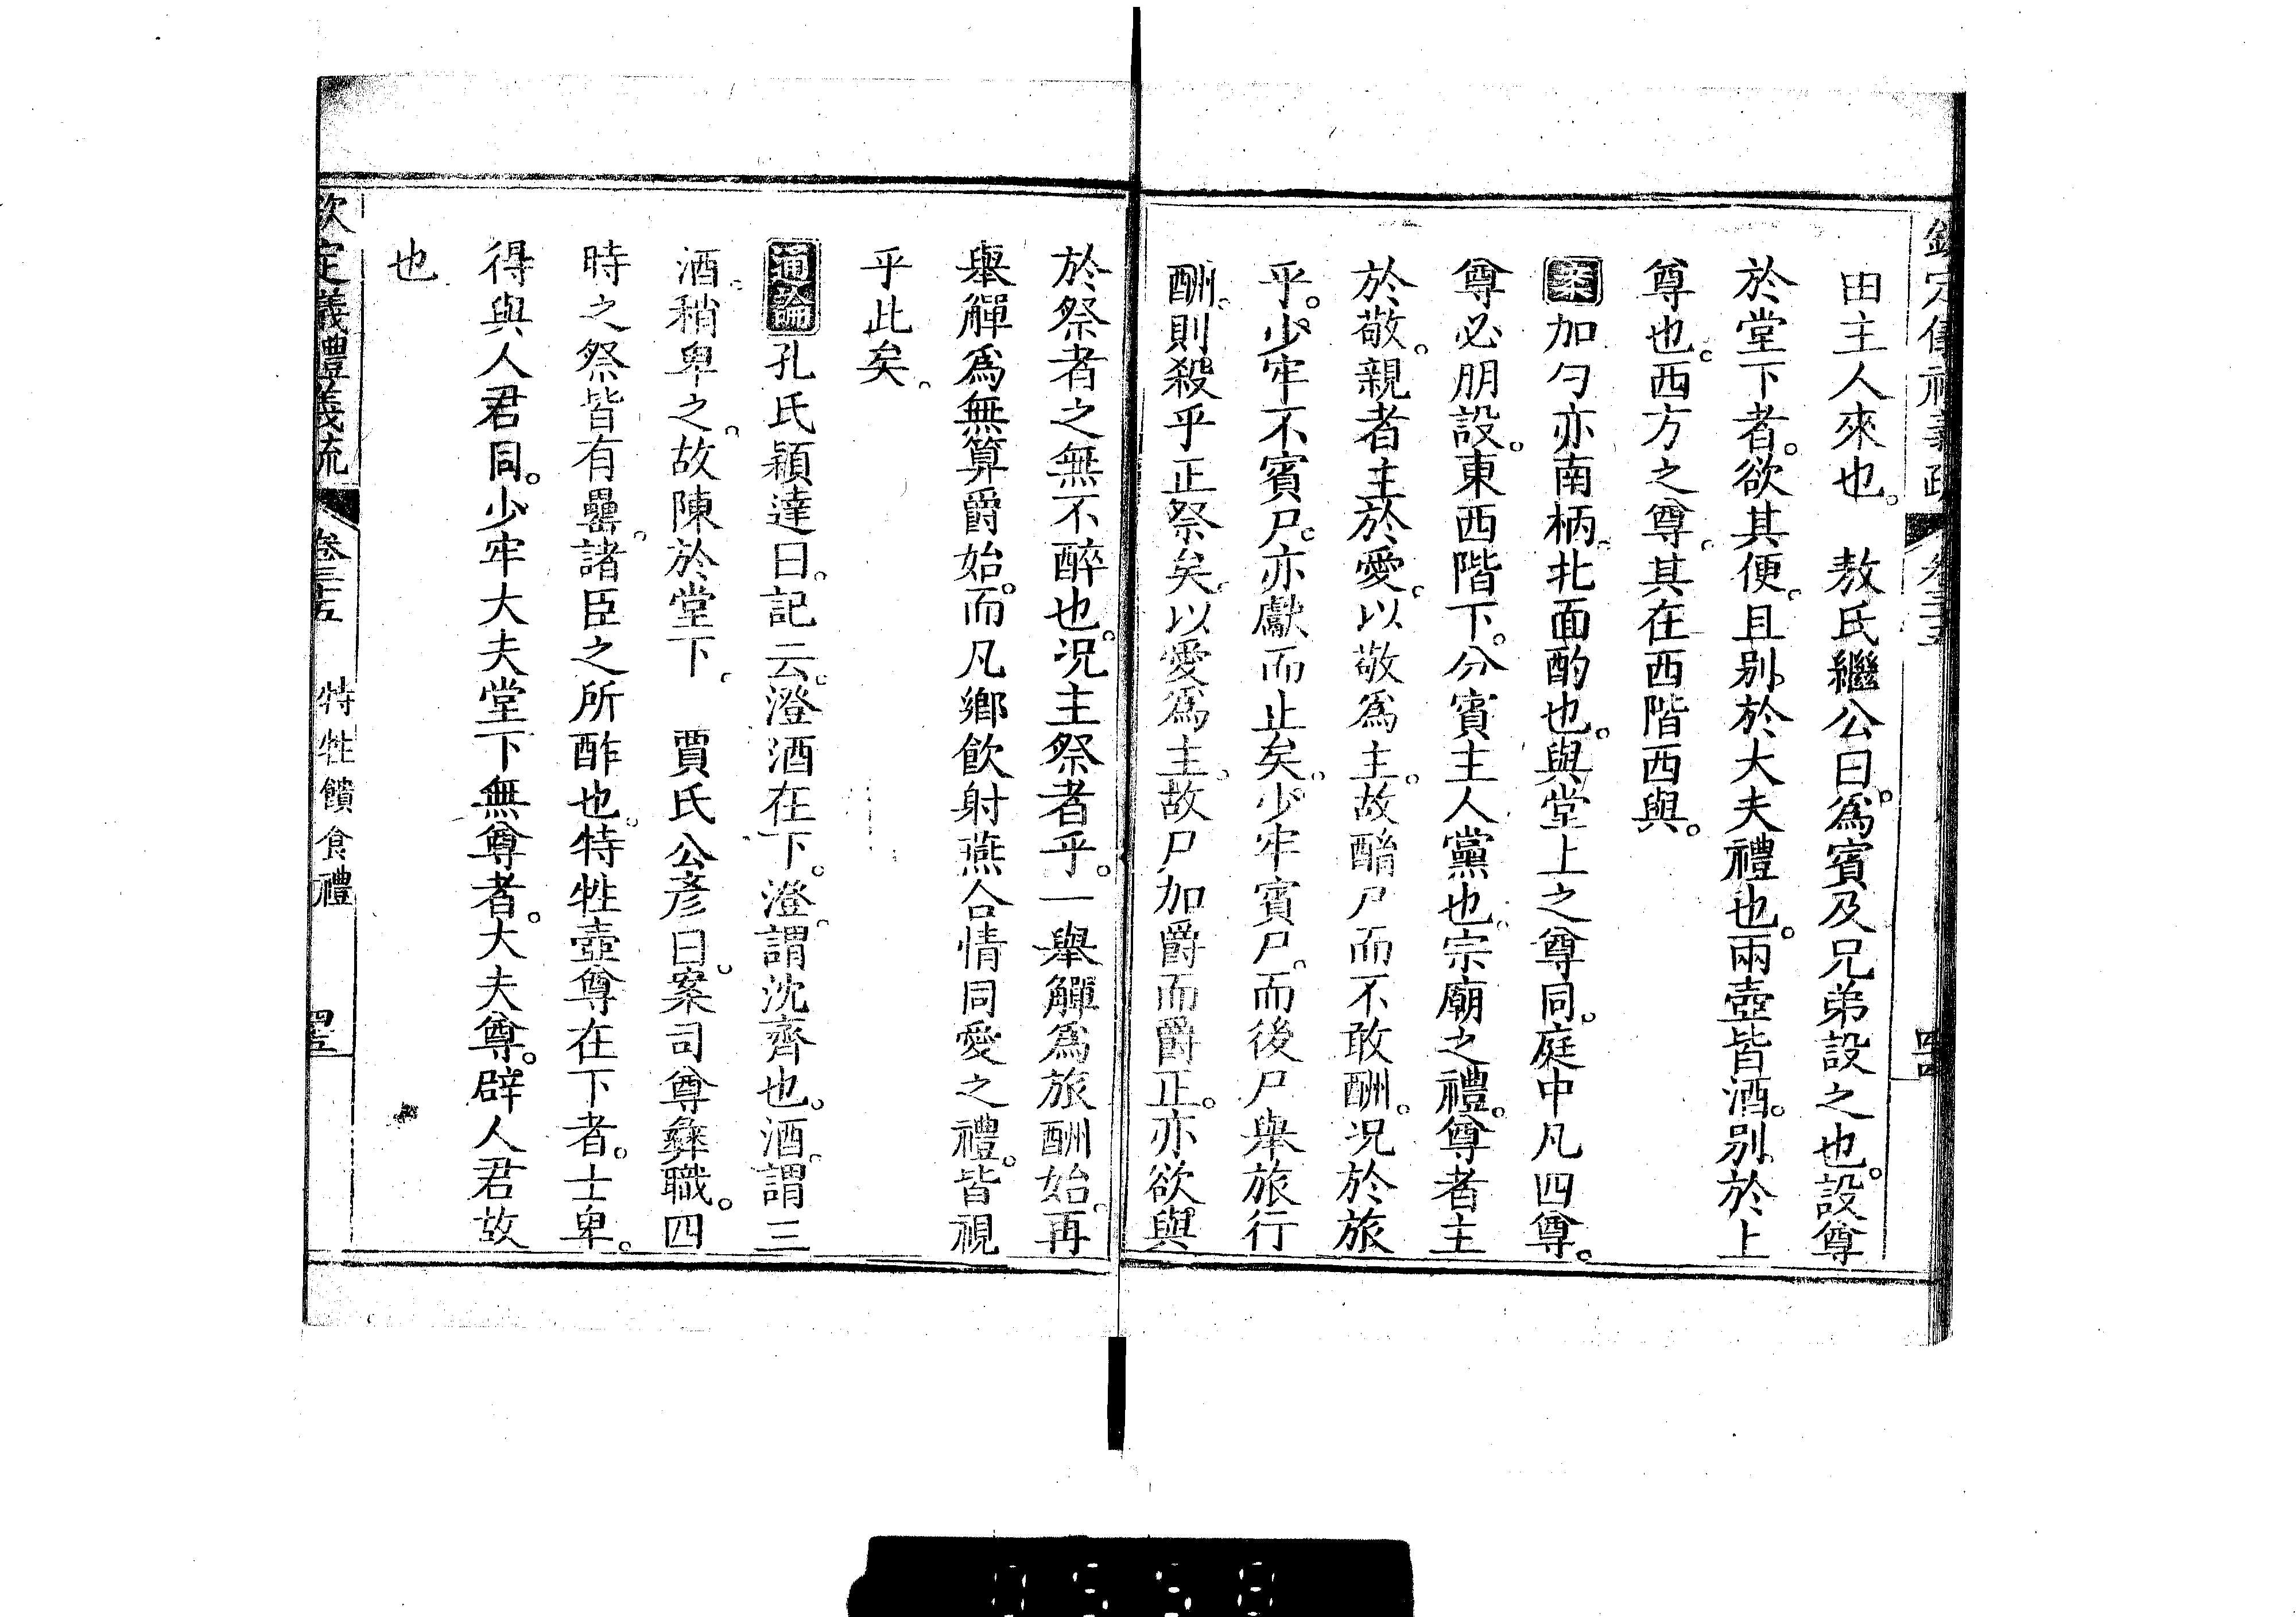 欽定儀禮義疏 卷三十五 四十四
由主人來也。 敖氏繼公曰。爲賓及兄弟設之也。設尊
於堂下者。欲其便。且别於大夫禮也。兩壺皆酒。别於上
尊也。西方之尊。其在西階西與。
案加勺亦南柄。北面酌也。與堂上之尊同。庭中凡四尊。
尊必朋設。東西階下。分賓主人黨也。宗廟之禮。尊者主
於敬。親者主於愛。以敬爲主。故酳尸而不敢酬。况於旅
乎。少牢不賓尸。亦獻而止矣。少牢賓尸。而後尸舉旅行
酬。則殺乎正祭矣。以愛爲主。故尸加爵而爵正。亦欲與
於祭者之無不醉也。况主祭者乎。一舉觶爲旅酬始。再
舉觶爲無算爵始。而凡鄉飲射燕合情同愛之禮。皆視
乎此矣。
通論孔氏穎達曰。記云。澄酒在下。澄。謂沈齊也。酒。謂三
酒。稍卑之。故陳於堂下。 賈氏公彦曰。案司尊彝職。四
時之祭皆有罍。諸臣之所酢也。特牲壺尊在下者。士卑。
得與人君同。少牢大夫堂下無尊者。大夫尊。辟人君故
也
欽定儀禮義疏 卷三十五 特牲饋食禮 四十五